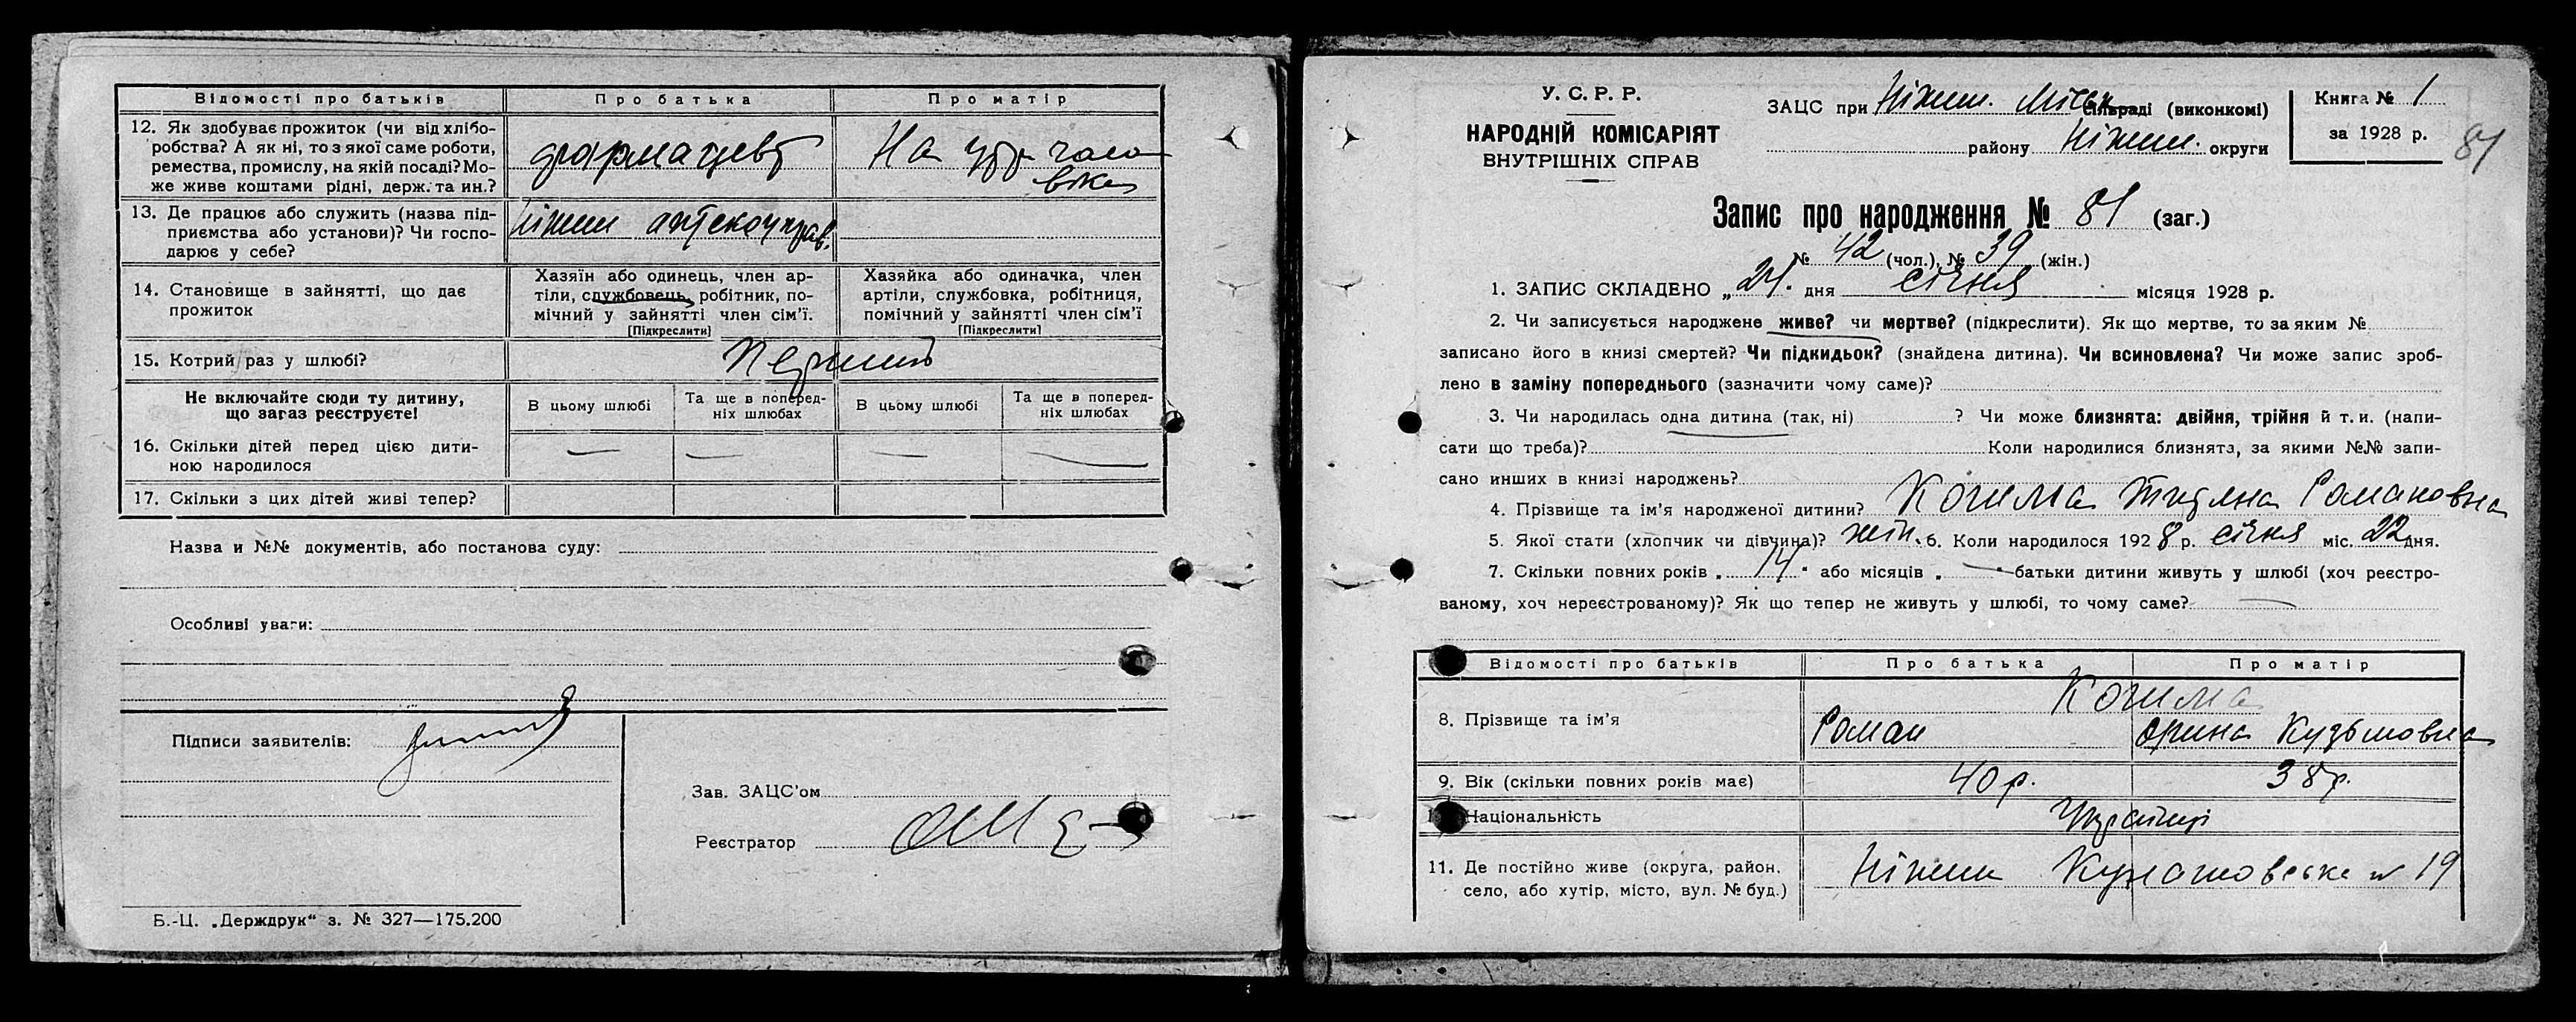 Відомості про батьків Про батька Про матір
12. Як здобуває прожиток (чи від хлібо-
робства? А як ні, то з якої саме роботи,
ремества, промислу, на якій посаді? Мо-
же живе коштами рідні, держ. та ин.?
фармацевт
На утр. чоло
віка
13. Де працює або служить (назва під-
приємства або установи)? Чи госпо-
дарює у себе?
Ніжин аптекоуправ.
14. Становище в зайнятті, що дає
прожиток
Хазяїн або одинець, член ар-
тіли, службовець, робітник, по-
мічний у зайнятті член сім'ї.
[Підкреслити]
Хазяйка або одиначка, член
артіли, службовка, робітниця,
помічний у зайнятті член сім'ї
[Підкреслити]
15. Котрий раз у шлюбі?
Не включайте сюди ту дитину,
що зараз реєструєте!
В цьому шлюбі
Та ще в поперед-
ніх шлюбах
В цьому шлюбі
Та ще в поперед-
ніх шлюбах
16. Скільки дітей перед цією дити-
ною народилося
— — — —
17. Скільки з цих дітей живі тепер?
Назва и №№ документів, або постанова суду:
Особливі уваги:
Підписи заявителів:
Зав. ЗАЦС'ом
Реєстратор
Б.-Ц. „Держдрук“ з. № 327—175.200
У. С. Р. Р.
НАРОДНІЙ КОМІСАРІЯТ
ВНУТРІШНІХ СПРАВ
ЗАЦС при Ніжин. Міськ сільраді (виконкомі)
району Ніжин. округи
Книга № 1
за 1928 р.
81
Запис про народження № 81 (заг.)
№ 42 (чол.), № 39 (жін.)
1. ЗАПИС СКЛАДЕНО „24“ дня січня місяця 1928 р.
2. Чи записується народжене живе? чи мертве? (підкреслити). Як що мертве, то за яким №
записано його в книзі смертей? Чи підкидьок? (знайдена дитина). Чи всиновлена? Чи може запис зроб-
лено в заміну попереднього (зазначити чому саме)?
3. Чи народилась одна дитина (так, ні) ? Чи може близнята: двійня, трійня й т. и. (напи-
сати що треба)? Коли народилися близнята, за якими №№ запи-
сано инших в книзі народжень?
4. Прізвище та ім'я народженої дитини? Романовна
5. Якої стати (хлопчик чи дівчина)? жін. 6. Коли народилося 1928 р. січня міс. 22 дня.
7. Скільки повних років „14“ або місяців „—“ батьки дитини живуть у шлюбі (хоч реєстро-
ваному, хоч нереєстрованому)? Як що тепер не живуть у шлюбі, то чому саме? —
Відомості про батьків Про батька Про матір
8. Прізвище та ім'я
Роман Орина Кузьмовна
9. Вік (скільки повних років має) 40 р. 38 р.
Національність Українці
11. Де постійно живе (округа, район,
село, або хутір, місто, вул. № буд.)
Ніжин № 19